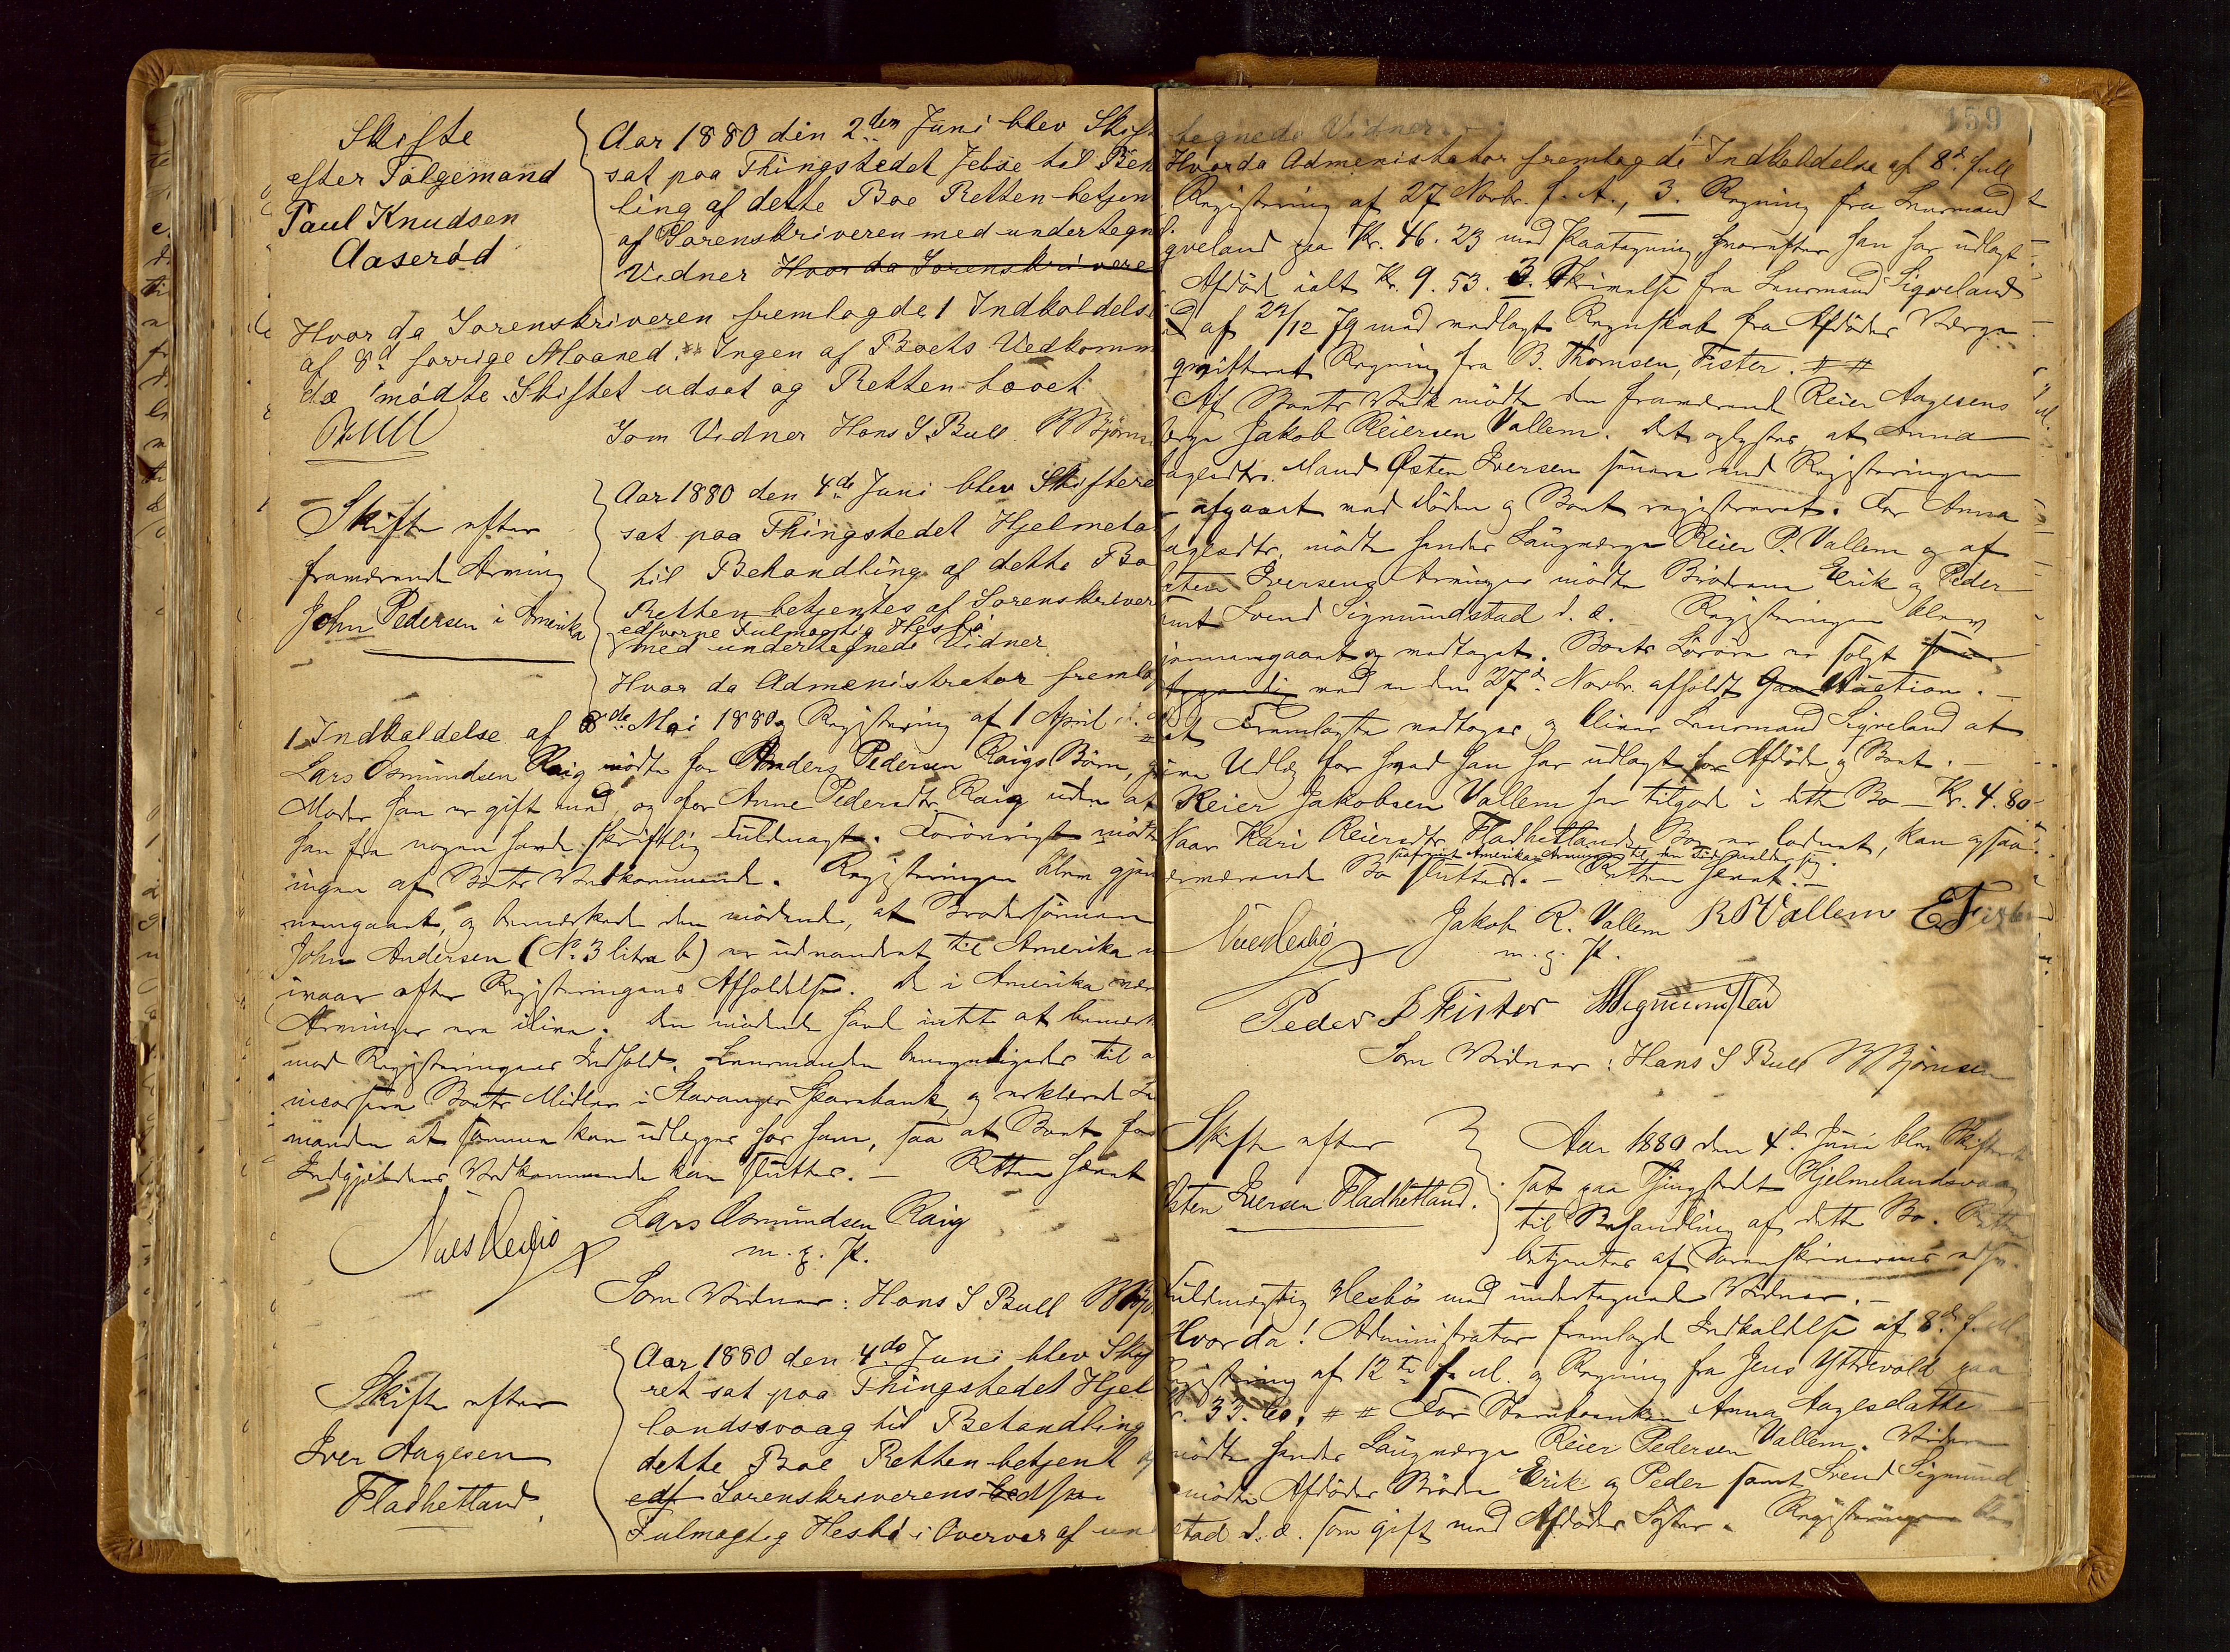 Skifte
efter Folgemand
Paul Knudsen
Aaserød
Aar 1880 den 2den Juni blev Skif
sat paa Thingstedet Jelse til Behand
ling af dette Boe Retten betjen
af Sorenskriveren med undertegn
Vidner Hvor da Sorenskrivere
Hvor da Sorenskriveren fremlagde 1 Indkaldelse
af 8d forrige Maaned. Ingen af Boets Vedkomm
de mødte. Skiftet udsat og Retten hævet
Som Vidner Hans S. Bull BBjørns
Skifte efter
fraværende Arving
John Pedersen i Amerika
Aar 1880 den 4de Juni blev Skiftere
sat paa Thingstedet Hjelmela
til Behandling af dette Bo
Retten betjentes af Sorenskriver
edsvorne Fulmægtig Hesbø
med undertegnede Vidner
Hvor da Admenistrator fremla
1 Indkaldelse af 8de Mai 1880 og Registering af 1 April d. A.
Lars Osmundsen Raig mødte for Anders Pedersen Raigs Børn, hvis
Moder han er gift med, og for Anne Pedersdtr Raig uden at
han fra nogen havde skriftlig Fuldmagt. Forøvrigt mødte
ingen af Boets Vedkommende. Registeringen blev gjen
nemgaaet, og bemærkede den mødende, at Brodersønnen
John Andersen (No 3 litra b) er udvandret til Amerika
ivaar efter Registeringens Afholdelse. De i Amerika vær
Arvinger ere ilive. Den mødende havde intet at bemærk
mod Registeringens Indhold. Lensmanden bemyndigedes til a
incassere Boets Midler i Stavanger Sparebank, og erklærede Le
manden at summen kan udlægges for ham, saa at Boet for
Indgjældens Vedkommende kan sluttes. — Retten hævet
Nils Hesbø
Lars Osmundsen Raig
m. p. P.
Som Vidner: Hans S Bull BBjø
Skifte efter
Iver Aagesen
Fladhetland.
Aar 1880 den 4de Juni blev Skif
ret sat paa Thingstedet Hjel
landsvaag til Behandling
dette Boe Retten betjent
edf Sorenskriverens edsvo
Fulmægtig Hesbø i Overvær af un
159
tegnede Vidner.
Hvor da Admenistator fremlagde 1. Indkaldelse af 8d full
Registering af 27 Novbr. f. A., 3. Regning fra Lensmand
gveland paa Kr. 46. 23 med Paategning hvorefter han har udlagt
Afdøde ialt Kr. 9. 53. 3. Skrivelse fra Lensmand Sigveland
af 22/12 79 med vedlagt Regnskab fra Afdødes Værge
qvitteret Regning fra B. Thomsen, Fister. # #
Af Boets Vedk mødte den fraværende Reier Aagesens
Værge Jakob Reiersen Vallem. Det oplystes at Anna
Aagesdtrs. Mand Østen Iversen senere end Registeringen
afgaaet ved Døden og Boet registreret. For Anna
Aagesdtr. mødte hendes Laugværge Reier P. Vallem og af
Østen Iversens Arvinger mødte Brødrene Erik og Peder
samt Svend Sigmundstad d. æ. — Registeringen blev
gjennemgaaet og vedtaget. Boets Løsøre er solgt
ved en den 27d. Novbr. afholdt Auction. —
Det Fremlagte vedtoges og bliver Lensmand Sigveland at
give Udlæg for hvad han har udlagt for Afdøde og Boet. —
Reier Jakobsen Vallem har tilgode i dette Bo — Kr. 4. 80
Naar Kari Reiersdtr. Fladhetlands Bo er ladet, kan ogsaa
nærværende Bo sluttes. — Retten hævet. —
Nils Hesbø
Jakob R. Vallem R P Vallem E Fister
m. p. P.
Peder I Fister SSigmunstad
Som Vidner: Hans S Bull BBjørnsen
Skifte efter
Østen Iversen Fladhetland.
Aar 1880 den 4de Juni blev Skifteret
sat paa Thingstedet Hjelmelandsvaag
til Behandling af dette Bo. Retten
betjentes af Sorenskriverens edsv.
Fuldmægtig Hesbø med undertegnede Vidner. —
Hvor da! Administrator fremlagde Indkaldelse af 8de f. M.
Registering af 12te f. M. og Regning fra Jens Yttrevold paa
Kr. 33. 60. # # For Stervboenken Anna Aagesdatter
mødte hendes Laugværge Reier Pedersen Vallem. Videre
mødte Afdødes Brødre Erik og Peder samt Svend Sigmund
stad d. æ. som gift med Afdødes Søster. Registeringen blev